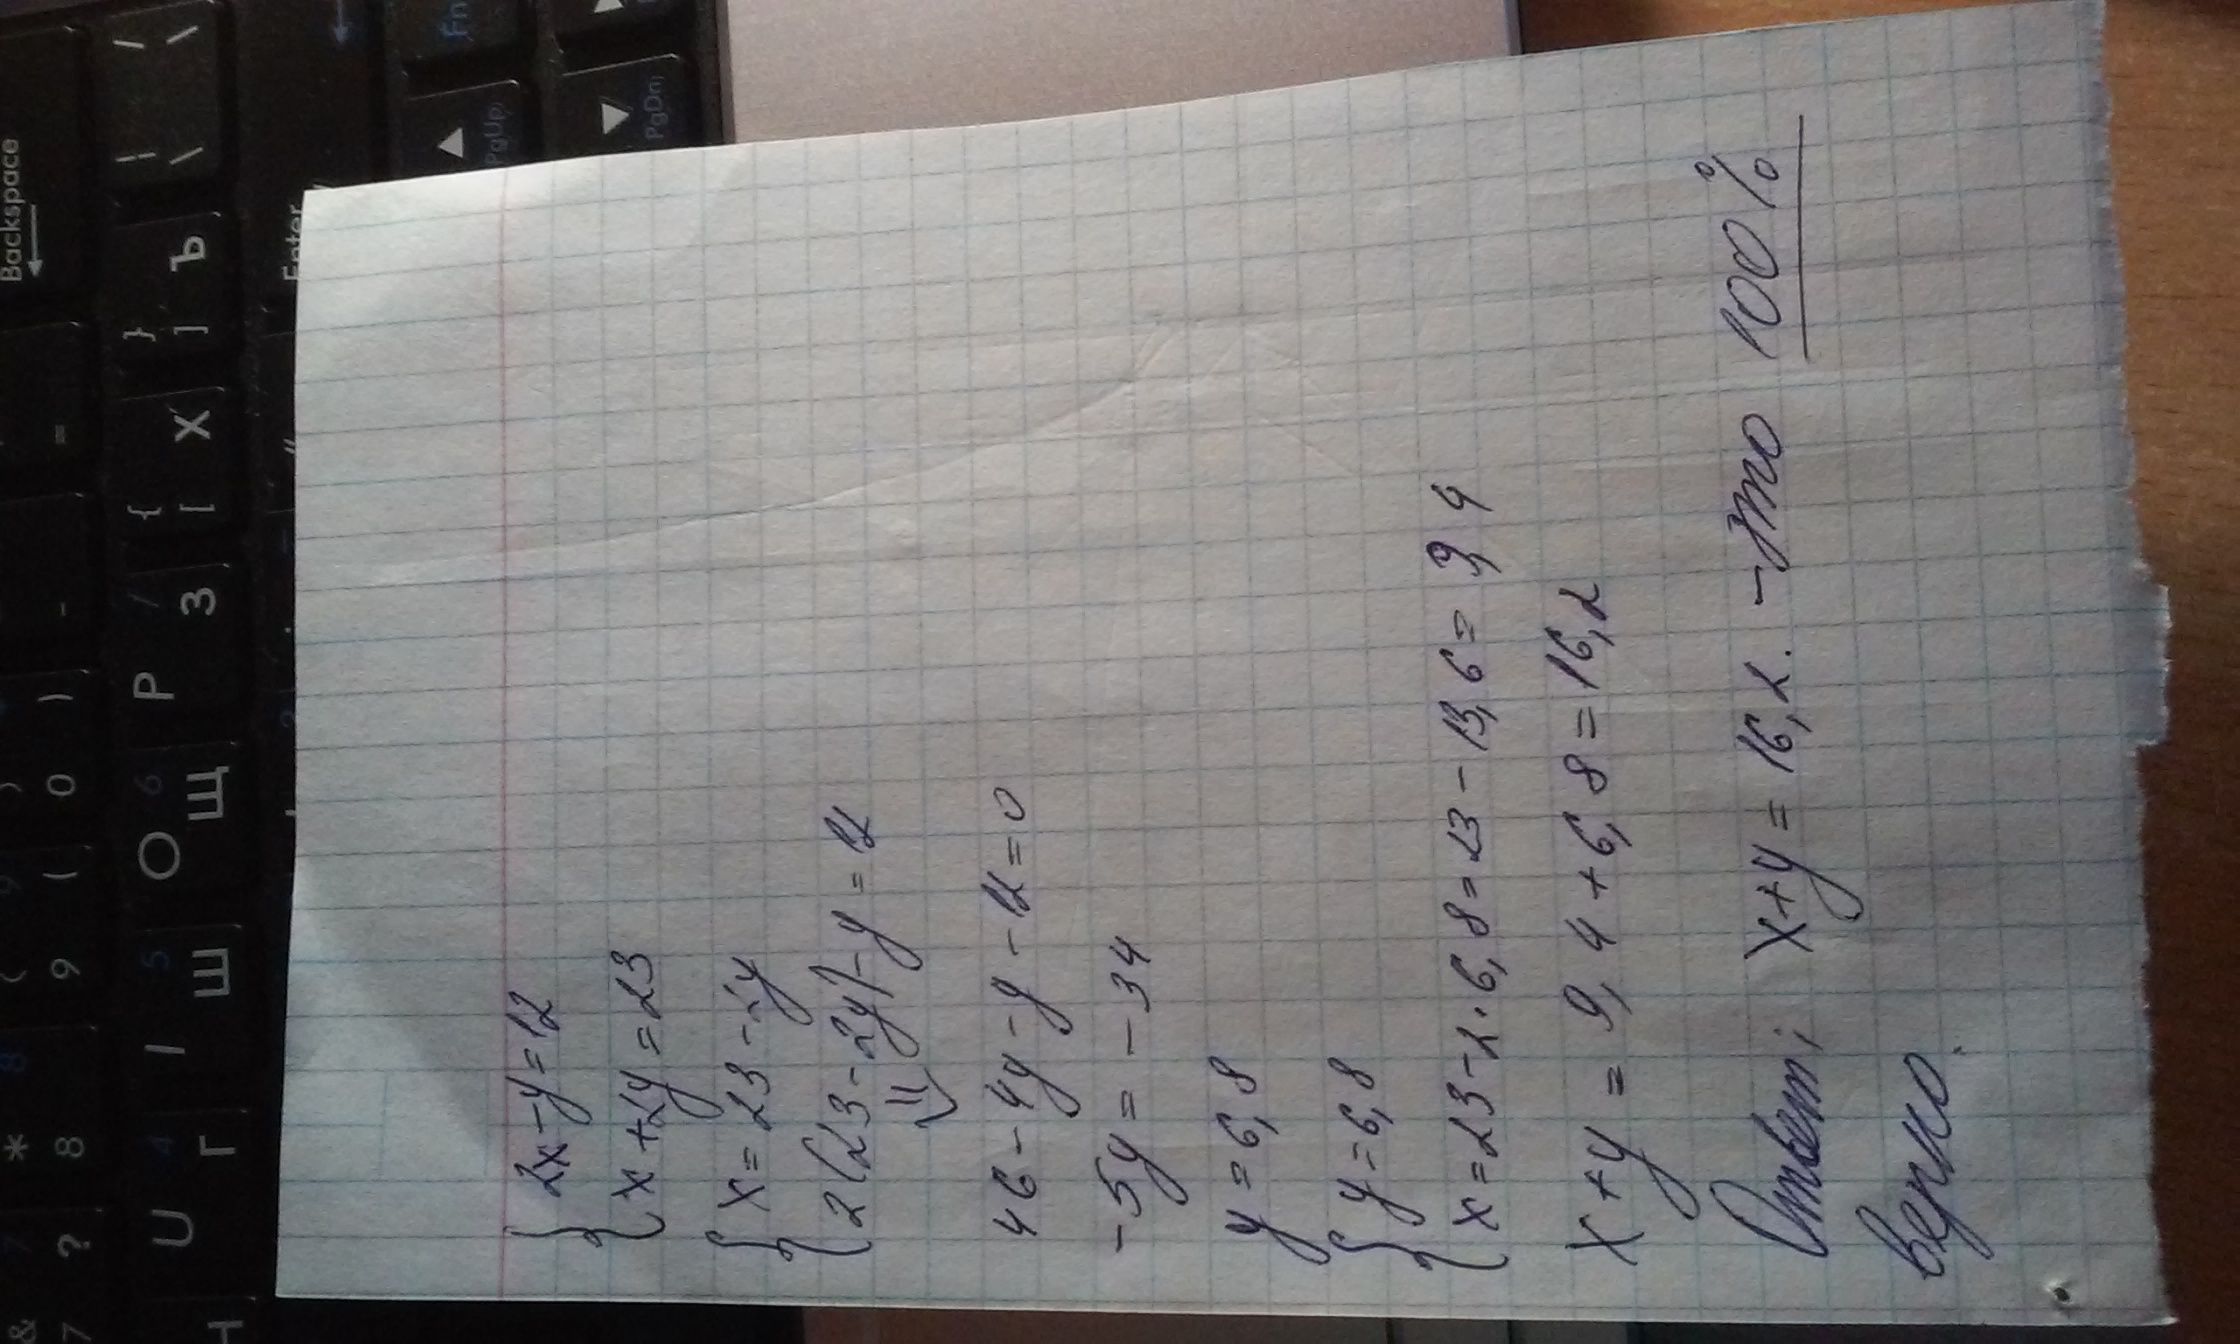 2x-y=12
x+2y=23
x=23-2y
2(23-2y)-y=12
46-4y-y-12=0
-5y=-34
y=6,8
y=6,8
x=23-2·6,8=23-13,6=9,4
x+y=9,4+6,8=16,2
Ответ: x+y=16,2. -это 100%
верно.
Backspace
Enter
Fn
PgUp
PgDn
= - 0 ) 9 ( 8 * 7 ? &
Ъ ] }
Х [ {
З Р /
Щ O 6
Ш I 5
Г U 4
Н